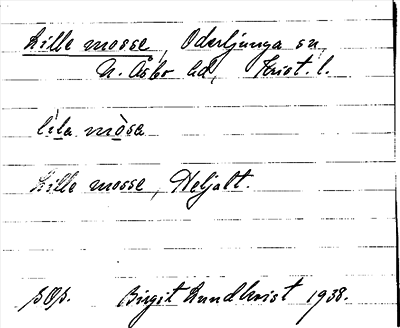 Lille mosse, Oderljunga sn,
N. Åsbo hd, Krist. l.
lìla mòsa
Lille mosse, Heljalt.
Birgit Lundkvist 1938.